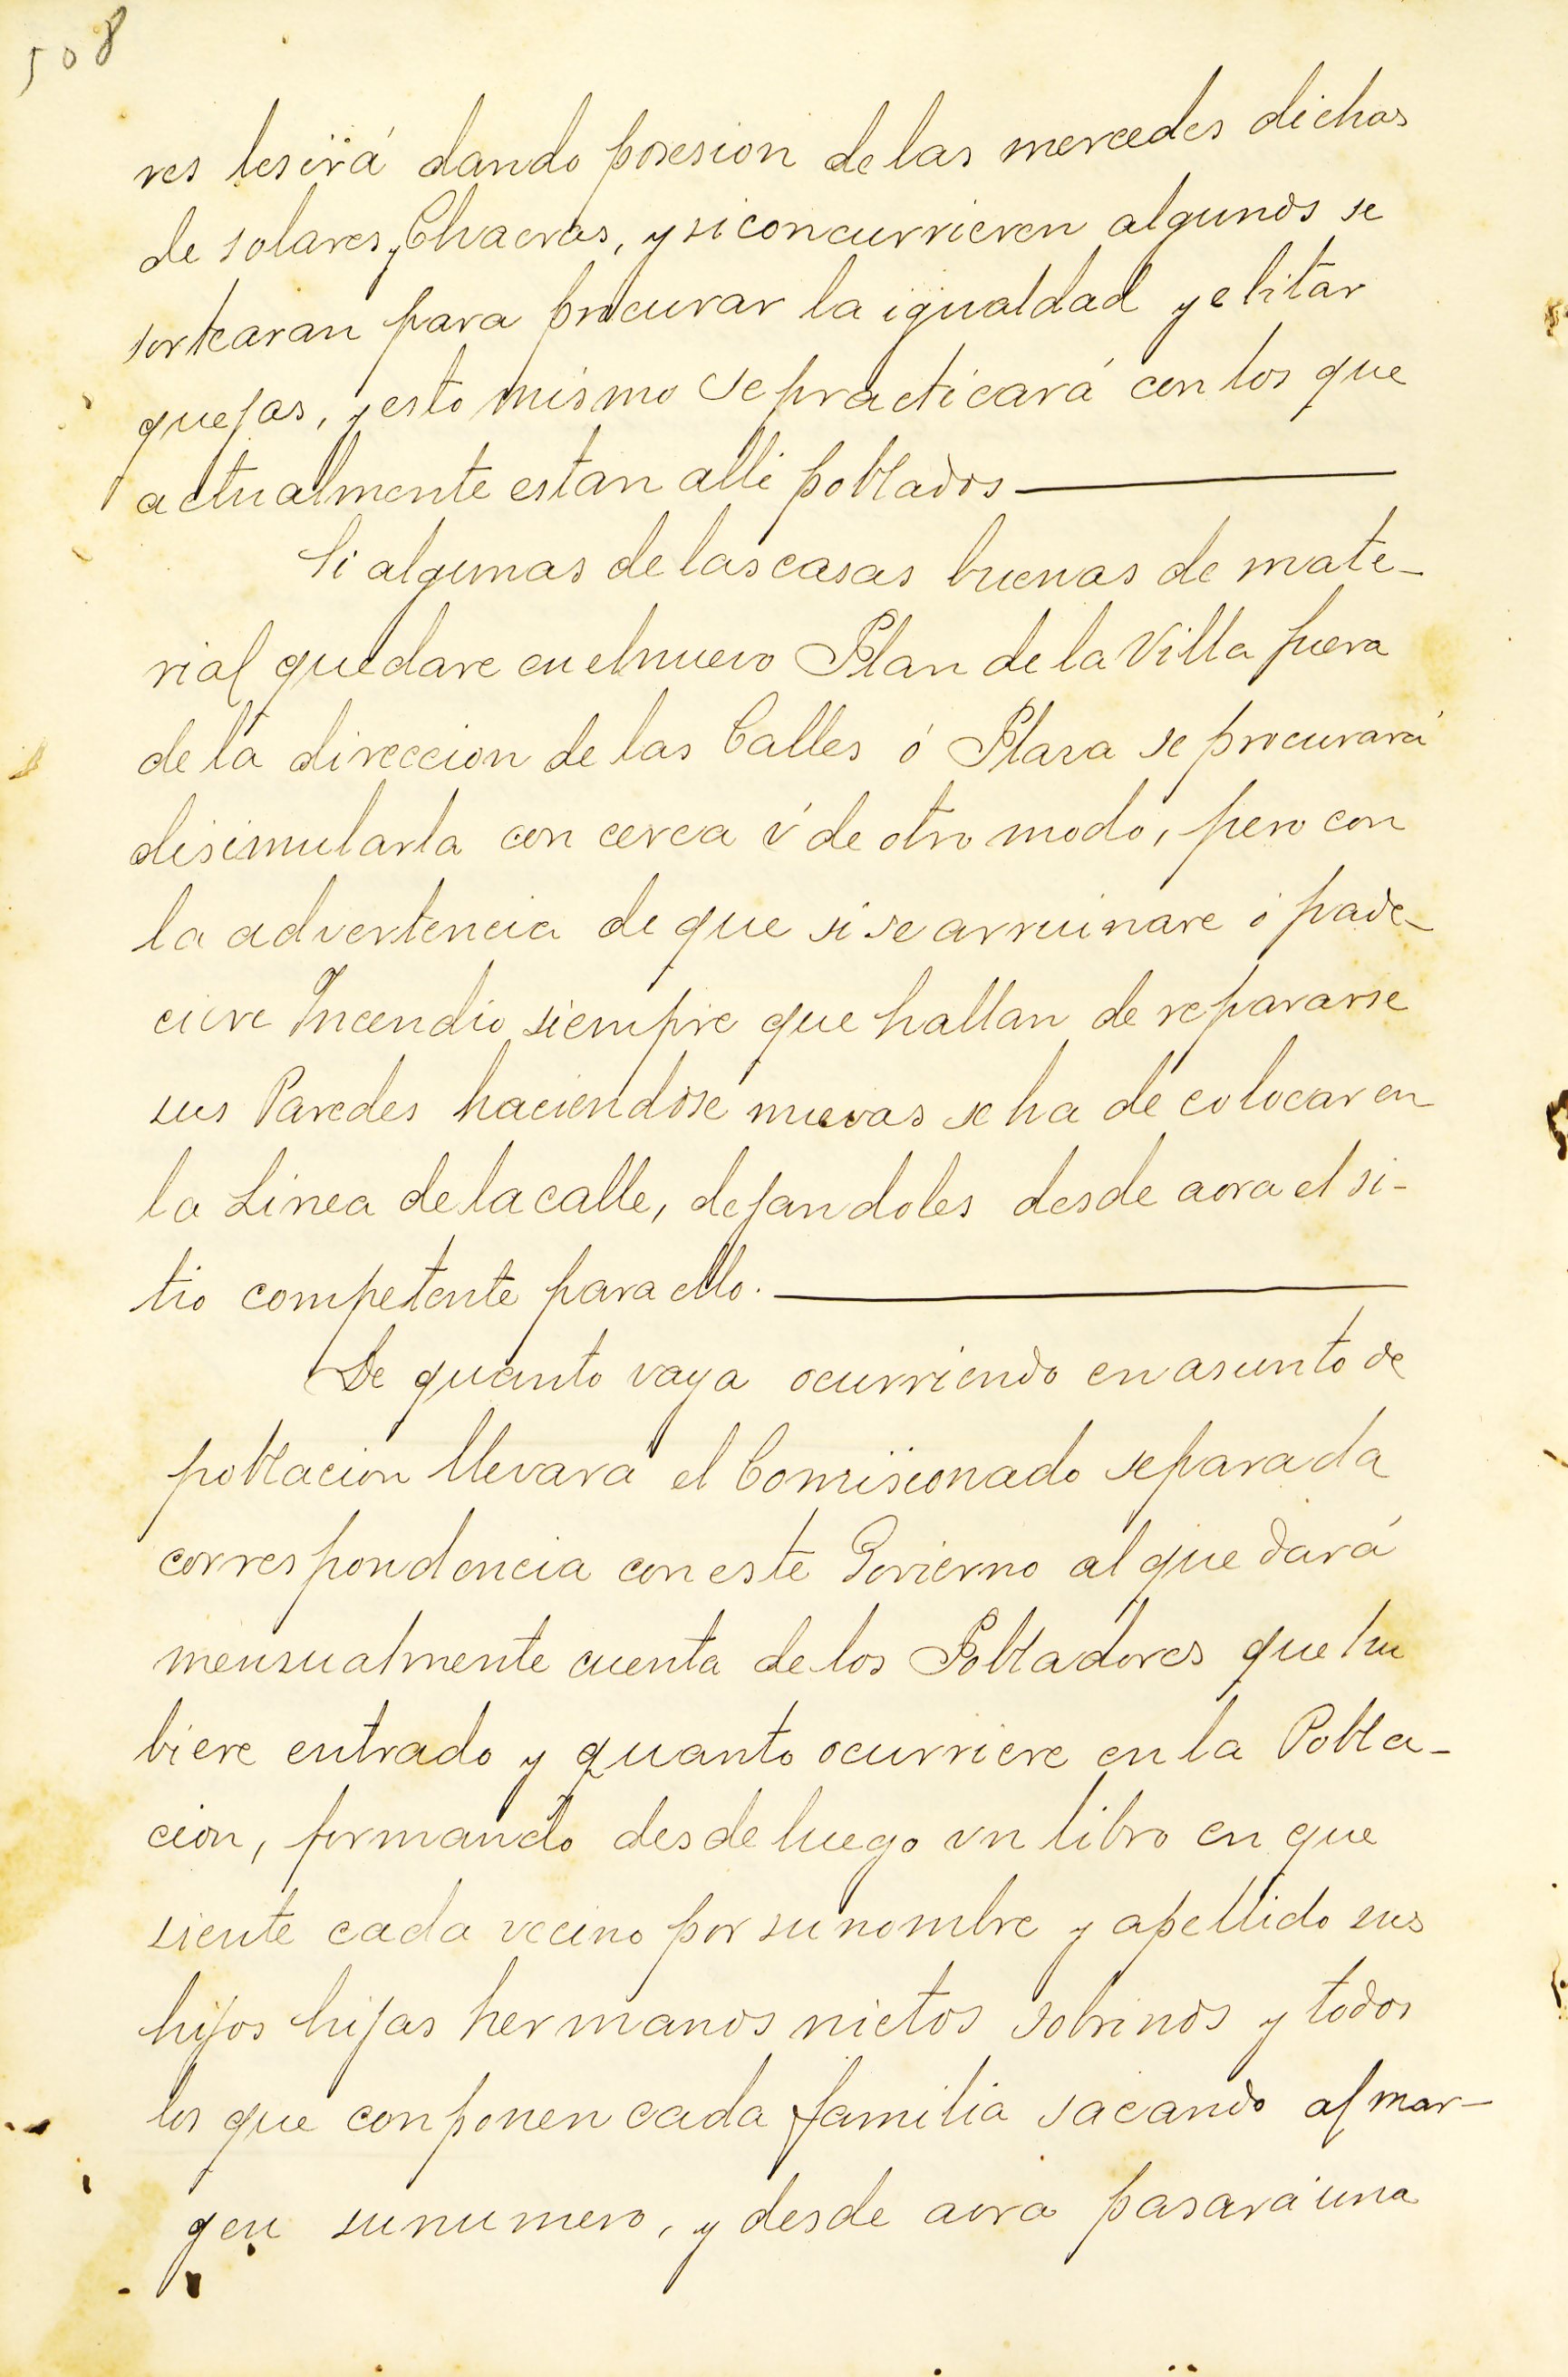 508
res les irá dando posesion de las mercedes dichas
de solares, y Chacras, y si concurrieren algunos se
sortearan para procurar la igualdad y elitar
quejas, y esto mismo se practicará con los que
actualmente estan alli poblados
Si algunas de las casas buenas de mate-
rial quedare en el nuevo Plan de la Villa fuera
de la direccion de las Calles ó Plaza se procurará
disimularla con cerca ú de otro modo, pero con
la advertencia de que si se arruinare ó pade-
ciere Incendio siempre que hallan de repararse
sus Paredes haciendose nuevas se ha de colocar en
la Linea de la calle, dejandoles desde aora el si-
tio competente para ello.
De quanto vaya ocurriendo en asunto de
poblacion llevará el Comisionado separada
correspondencia con este Govierno al que dará
mensualmente cuenta de los Pobladores que hu
biere entrado y quanto ocurriere en la Pobla-
cion, formando desde luego vn libro en que
siente cada vecino por su nombre y apellido sus
hijos hijas hermanos nietos sobrinos y todos
los que conponen cada familia sacando al mar-
gen su numero, y desde aora pasará una